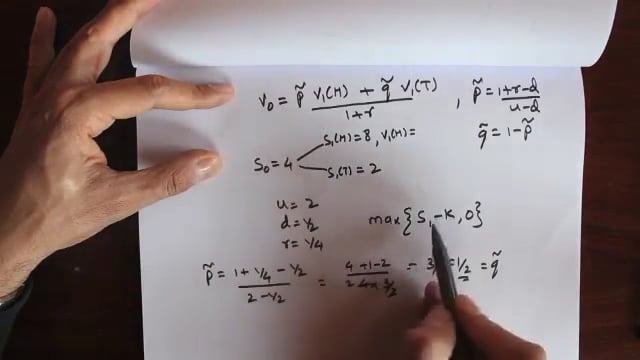 V₀ = p̃ V₁(H) + q̃ V₁(T) / 1+r , p̃ = 1+r-d / u-d
q̃ = 1-p̃
S₀ = 4 S₁(H) = 8, V₁(H) =
S₁(T) = 2
u = 2
d = 1/2
r = 1/4
max{S₁-K, 0}
p̃ = 1 + 1/4 - 1/2 / 2 - 1/2 = 4+1-2 / = = 1/2 = q̃